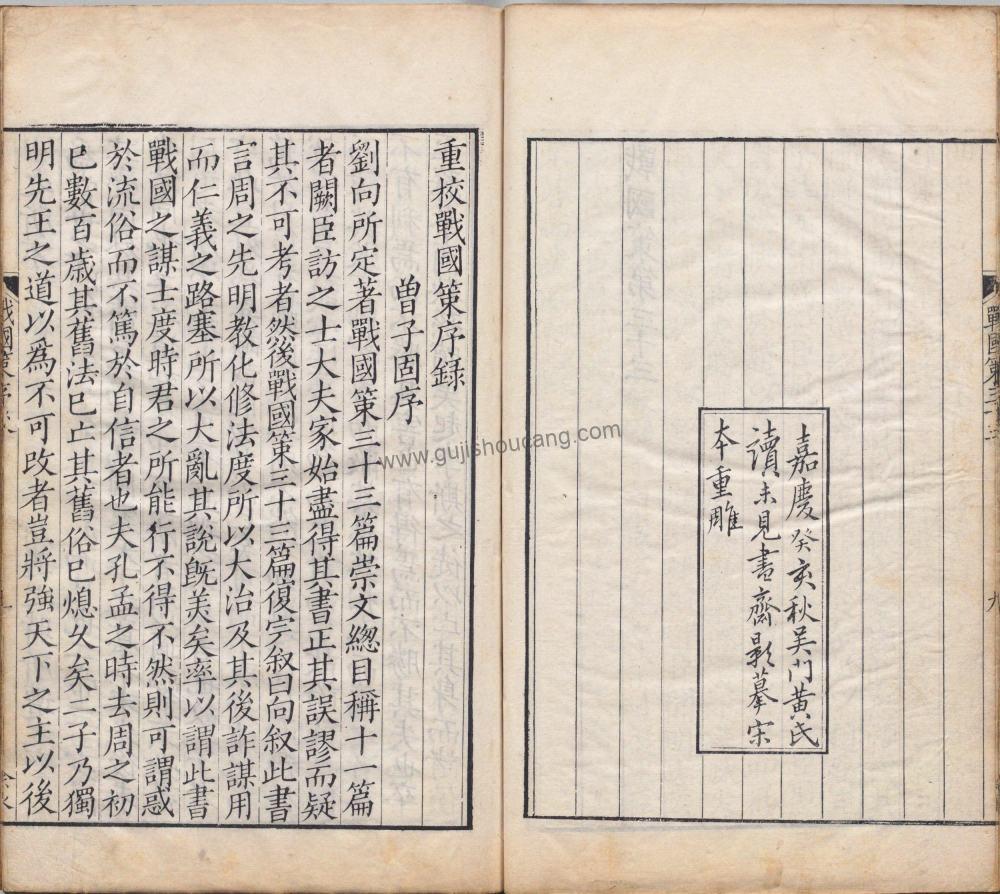 戰國策三十三
九
嘉慶癸亥秋吴门黄氏
讀未見書齋影摹宋
本重雕
重校戰國策序録
曾子固序
劉向所定著戰國策三十三篇崇文緫目稱十一篇
者闕臣訪之士大夫家始盡得其書正其誤謬而疑
其不可考者然後戰國策三十三篇復完叙曰向叙此書
言周之先明教化修法度所以大治及其後詐謀用
而仁義之路塞所以大亂其說旣美矣率以謂此書
戰國之謀士度時君之所能行不得不然則可謂惑
於流俗而不篤於自信者也夫孔孟之時去周之初
已數百歳其舊法已亡其舊俗已熄久矣二子乃獨
明先王之道以爲不可改者豈將強天下之主以後
戰國策序录
一
www.gujishoucang.com